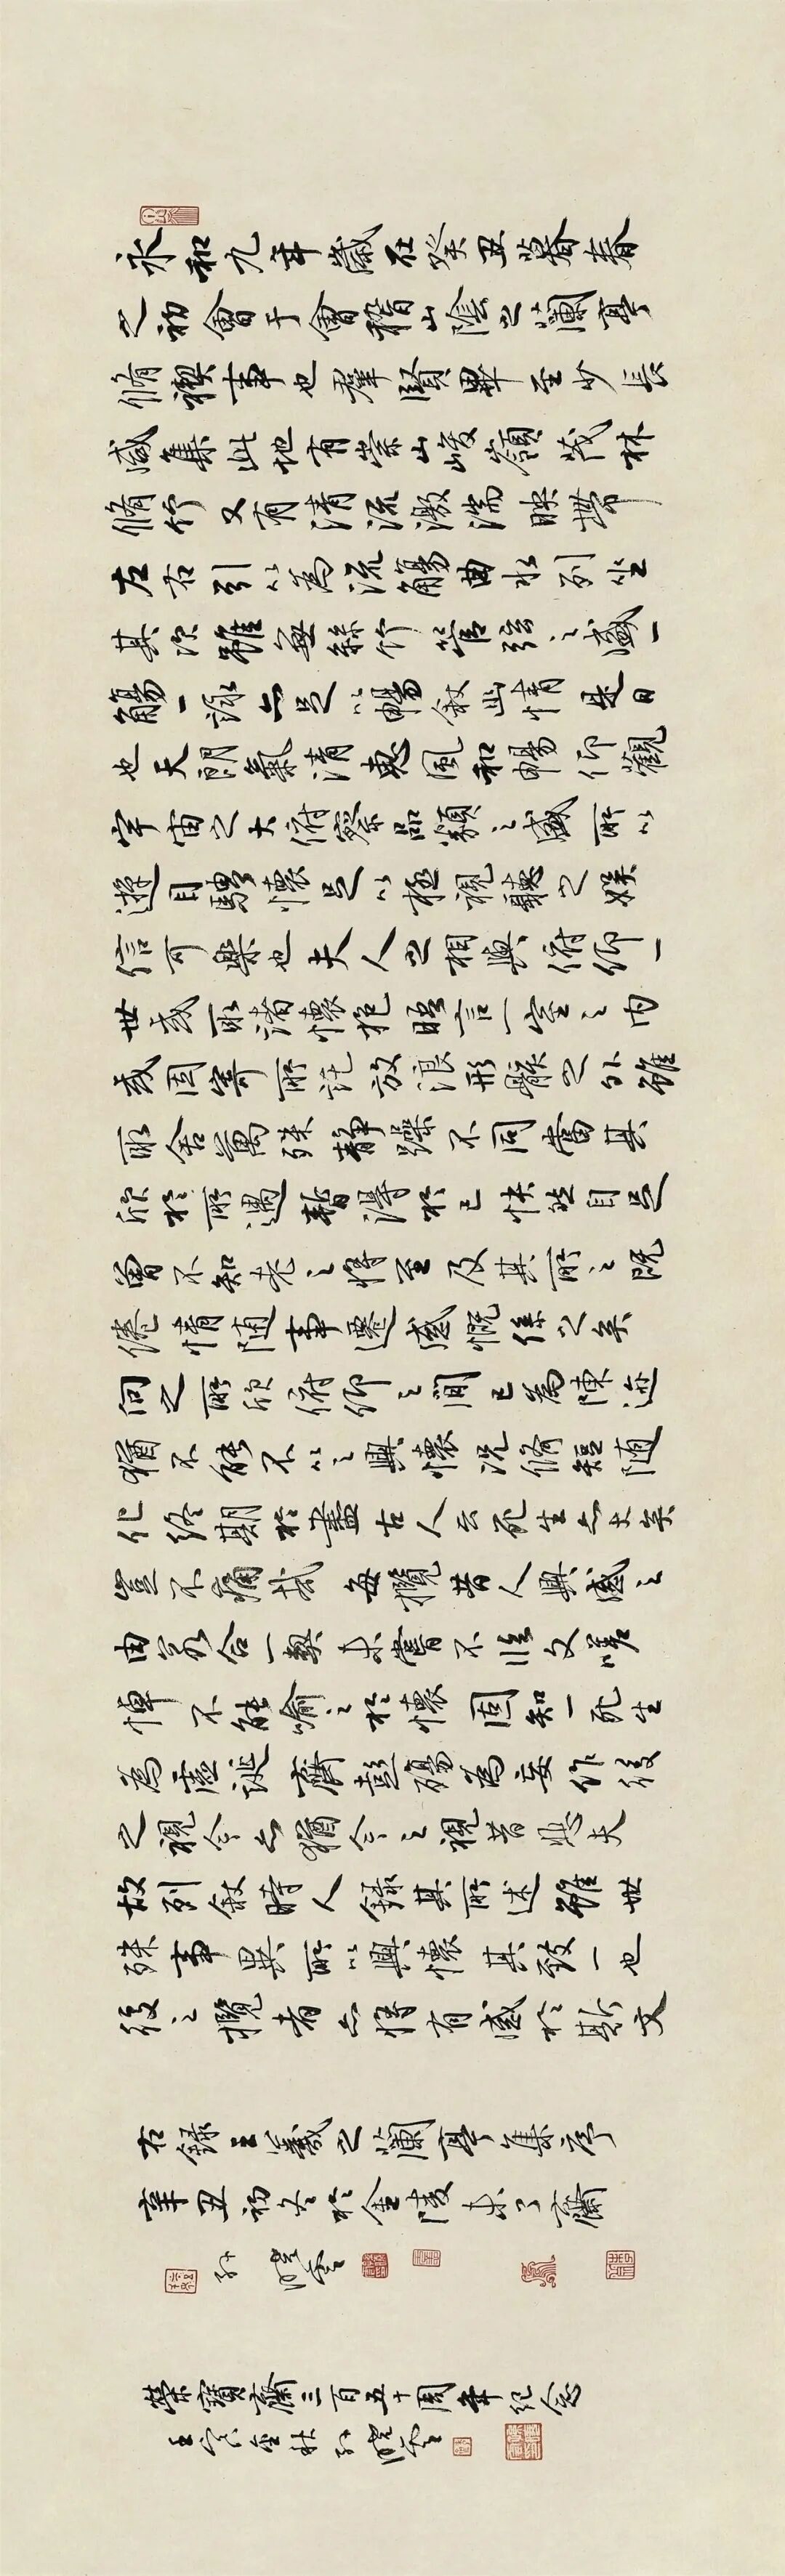 永和九年歲在癸丑暮春
之初會于會稽山陰之蘭亭
脩禊事也群賢畢至少長
咸集此地有崇山峻嶺茂林
脩竹又有清流激湍映帶
左右引以為流觴曲水列坐
其次雖無絲竹管弦之盛一
觴一詠亦足以暢敘幽情是日
也天朗氣清惠風和暢仰觀
宇宙之大俯察品類之盛所以
遊目騁懷足以極視聽之娛
信可樂也夫人之相與俯仰一
世或取諸懷抱晤言一室之內
或因寄所託放浪形骸之外雖
取舍萬殊靜躁不同當其
欣於所遇暫得於己快然自足
曾不知老之將至及其所之既
倦情随事遷感慨係之矣
向之所欣俯仰之間已為陳迹
猶不能不以之興懷况脩短随
化終期於盡古人云死生亦大矣
豈不痛哉每攬昔人興感之
由若合一契未嘗不臨文嗟
悼不能喻之於懷固知一死生
為虛誕齊彭殤為妄作後
之視今亦猶今之視昔悲夫
故列敘時人錄其所述雖世
殊事異所以興懷其致一也
後之攬者亦將有感於斯文
右錄王羲之蘭亭集序
辛丑初冬於金陵未了齋
孫曉雲
榮寶齋三百五十周年紀念
壬寅金秋孫曉雲